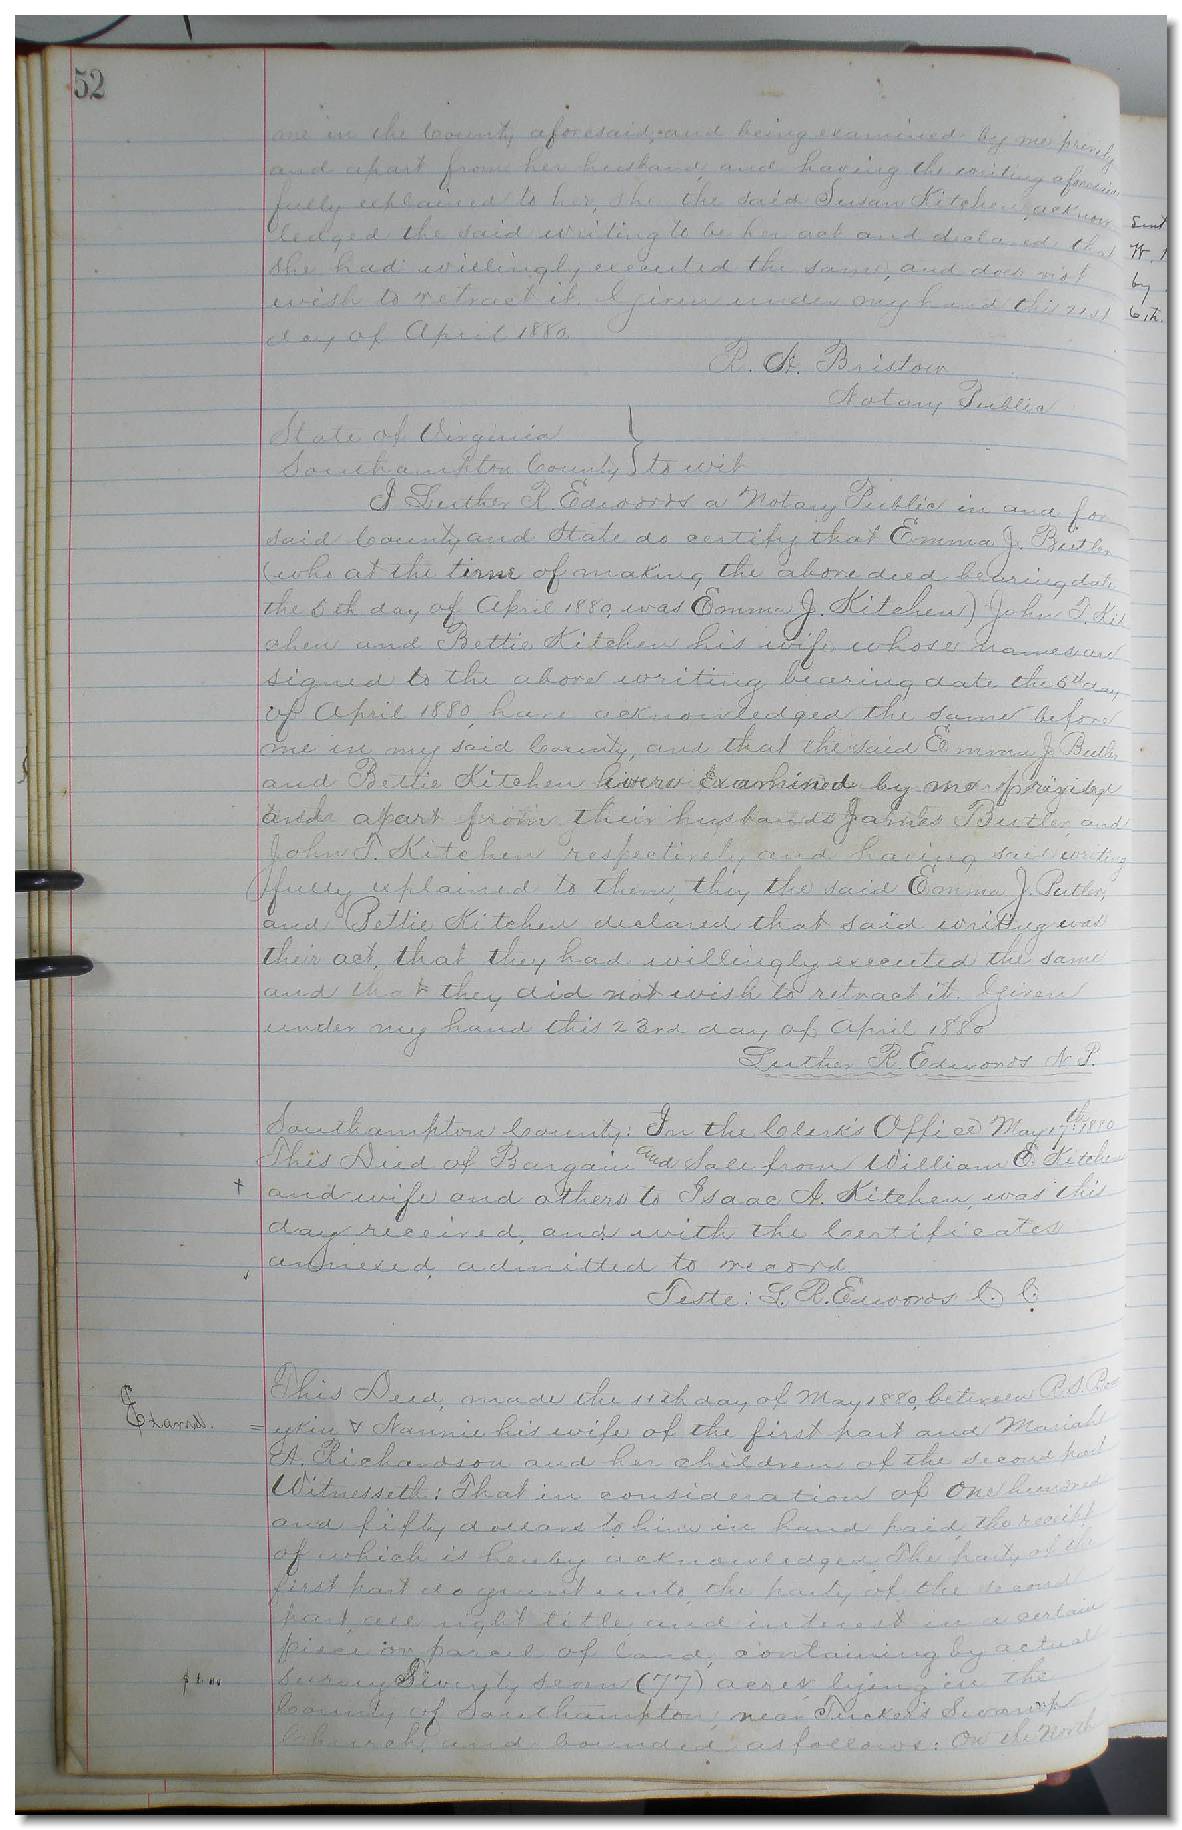 52
me in the County aforesaid, and being examined by me privily
and apart from her husband, and having the writing aforesaid
fully explained to her, she the said Susan Kitchen acknow
ledged the said writing to be her act and declared that
she had willingly executed the same, and does not
wish to retract it. Given under my hand this 21st
day of April 1880
R. A. Bristow
Notary Public
State of Virginia
Southampton County } to wit
I Luther R. Edwards a Notary Public in and for
said County and State do certify that Emma J. Butler
(who at the time of making the above deed bearing date
the 6th day of April 1880, was Emma J. Kitchen) John T. Kit
chen and Bettie Kitchen his wife whose names are
signed to the above writing bearing date the 6th day
of April 1880, have acknowledged the same before
me in my said County, and that the said Emma J. Butler
and Bettie Kitchen were examined by me privily
and apart from their husbands James Butler, and
John T. Kitchen respectively and having said writing
fully explained to them, they the said Emma J. Butler,
and Bettie Kitchen declared that said writing was
their act, that they had willingly executed the same
and that they did not wish to retract it. Given
under my hand this 23rd day of April 1880
Luther R. Edwards N P.
Southampton County: In the Clerk's Office May 17th 1880
This Deed of Bargain and Sale from William E. Kitchen
and wife and others to Isaac A. Kitchen, was this
day received, and with the Certificates
annexed, admitted to record
Teste: L. R. Edwards C. C.
This Deed, made the 11th day of May 1880, between P. S. Bo
=ykin & Nannie his wife of the first part and Mariah
A. Richardson and her children of the second part
Witnesseth: That in consideration of One hundred
and fifty dollars to him in hand paid, the receipt
of which is hereby acknowledged, The party of the
first part do grant unto the party of the second
part, all right title and interest in a certain
piece or parcel of land, containing by actual
survey Seventy seven (77) acres, lying in the
County of Southampton, near Tucker's Swamp
Church, and bounded as follows: On the North